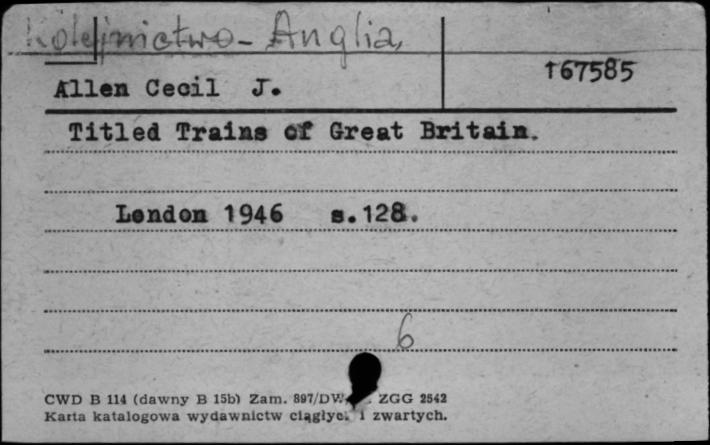 Kolejnictwo - Anglia,
167585
Allen Cecil J.
Titled Trains of Great Britain.
London 1946 s.128.
6
CWD B 114 (dawny B 15b) Zam. 897/DW ZGG 2542
Karta katalogowa wydawnictw ciągłyc i zwartych.